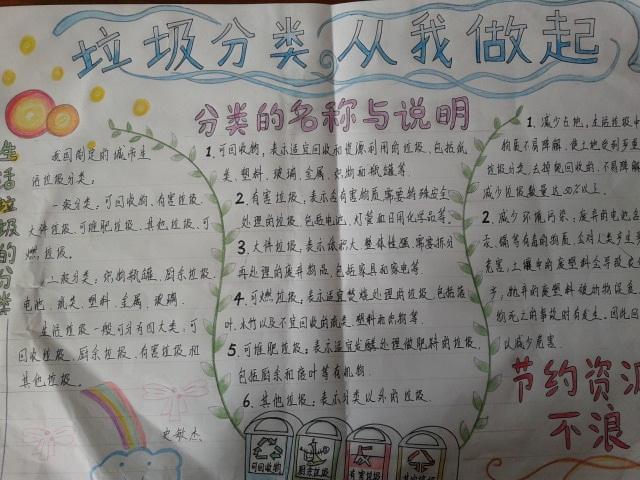 垃圾分类 从我做起
生活垃圾的分类
我国制定的城市生
活垃圾分类:
一级分类:可回收物、有害垃圾、
大件垃圾、可堆肥垃圾、其他垃圾、可
燃垃圾。
二级分类:织物、瓶罐、厨余垃圾、
电池、纸类、塑料、金属、玻璃.
生活垃圾一般可分为四大类:可
回收垃圾、厨余垃圾、有害垃圾和
其他垃圾。
史敏杰
分类的名称与说明
1.可回收物:表示适宜回收和资源利用的垃圾,包括纸
类、塑料、玻璃、金属、织物和瓶罐等.
2.有害垃圾:表示含有害物质,需要特殊安全
处理的垃圾,包括电池、灯管和日用化学品等.
3.大件垃圾:表示体积大、整体性强,需要拆分
再处理的废弃物品,包括家具和家电等.
4.可燃垃圾:表示适宜焚烧处理的垃圾,包括
叶、木竹以及不宜回收的纸类、塑料和织物等.
5.可堆肥垃圾:表示适宜发酵处理做肥料的垃圾,
包括厨余和废叶等有机物.
6.其他垃圾:表示分类以外的垃圾.
可回收物
厨余垃圾
有害垃圾
其他垃圾
1.减少占地,生活垃圾中
物质不易降解,使土地受到
垃圾分类,去掉能回收的、不易降解
减少垃圾数量达50%以上.
2.减少环境污染:废弃的电池
汞、镉等有毒的物质,会对人类产生
危害,土壤中的废塑料会导致
抛弃的废塑料被动物误
物死亡的事故时有发生。因此回
以减少危害.
节约资源
不浪